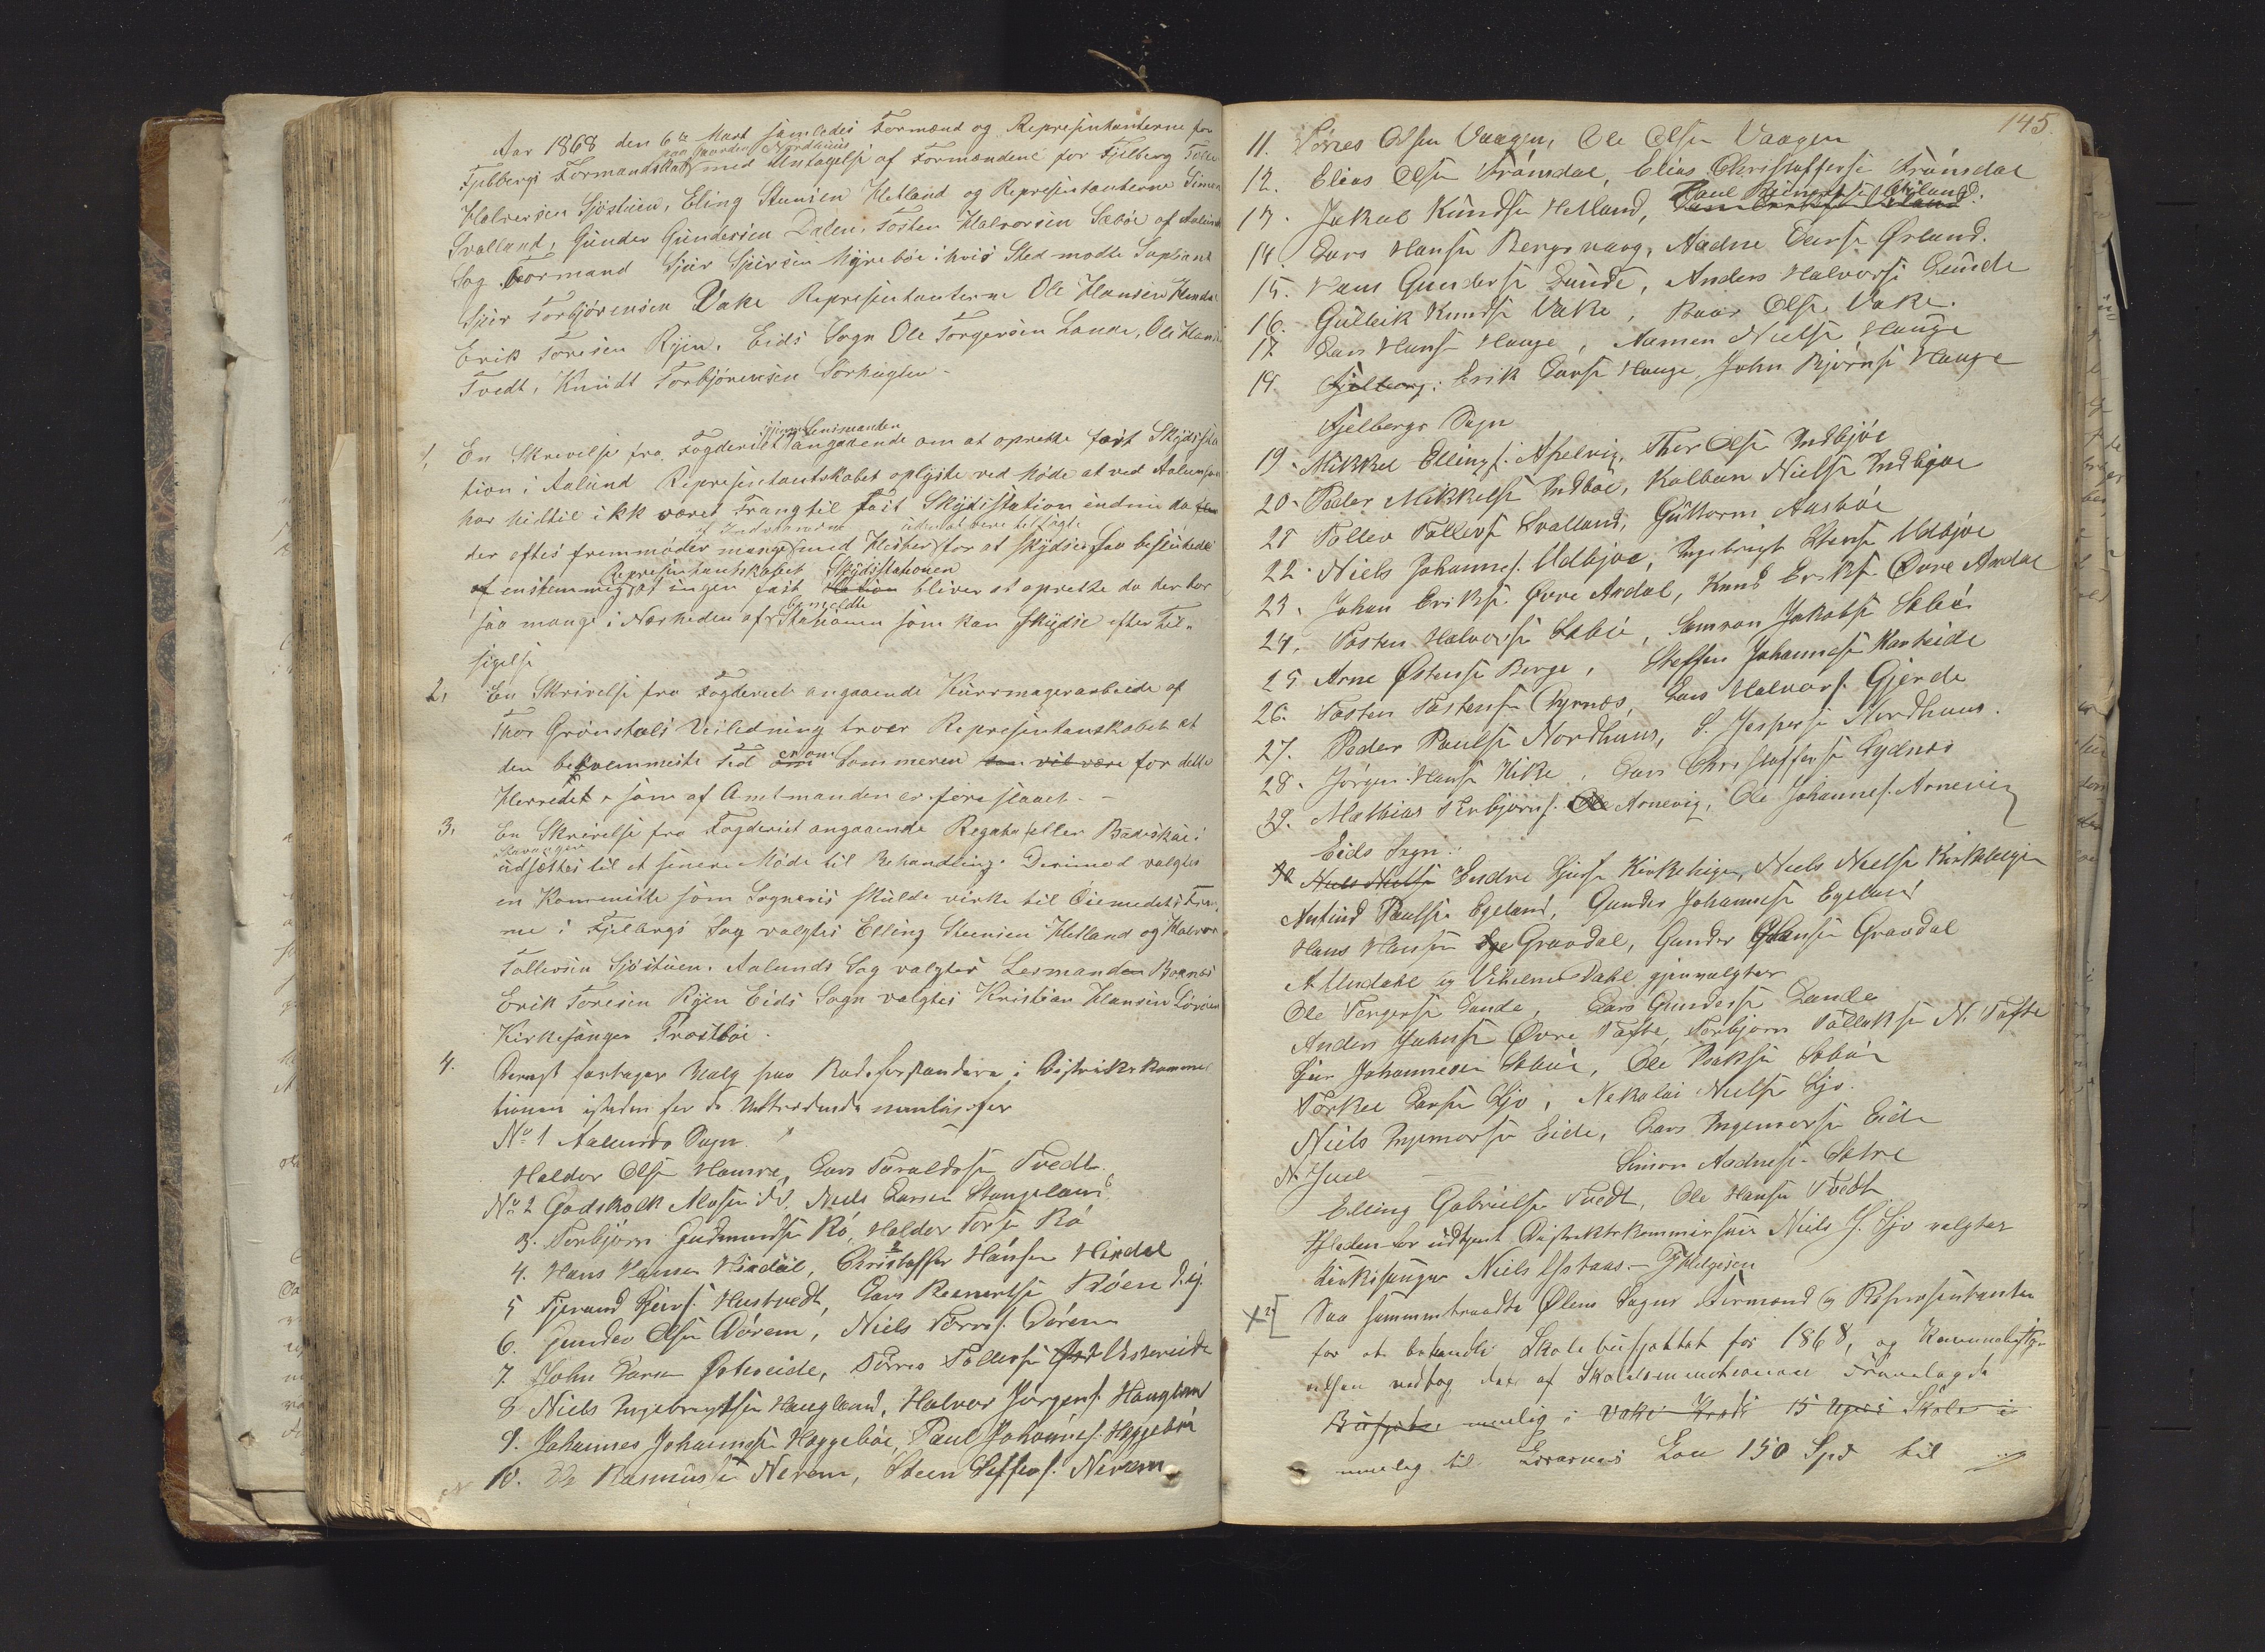 Aar 1868 den 6te Mart samledes Formænd og Repræsentanterne for
paa Gaarden Nordhuus
Fjelbergs Formandskab med Untagelse af Formændene for Fjelberg
Halversen Sjöstuen, Eling Steensen Hetland og Repræsentanterne Simen
Svalland, Gunder Gundersen Dalen, Tosten Halvorsen Sæböe af Aalund
Sog Formand Sjur Sjursen Myreböe i hvis Sted modte Supliant
Sjur Torbjörnsen Vake Repræsentanterne Ole Hansen Hindal
Erik Toresen Ryen, Eids Sogn Ole Torgersen Lande, Ole Hansen
Tvedt, Knudt Torbjörensen Sörhuglen
1, En Skrevelse fra Fogderiet gjennem Lensmanden angaaende om at oprette fast Skydssta
tion i Aalund Repræsentantskabet oplyste ved Möde at ved Aalunson
har hidtil ikk været Trang til fast Skydsstation endnu da
af Indvaanerne uden at være tilsagte
der oftes fremmöder mange med Hester for at skydse Saa besluttede
Repræsentantskabet Skydsstationen
af enstemmig at ingen fast Station bliver at oprette da der bor
bemeldte
saa mange i Nærheden af Stationen som kan skydse efter Til-
sigelse
2, En Skrivelse fra Fogderiet angaaende Kurvmagerarbeide af
Thor Grönstøls Veiledning troer Repræsentanskabet at
den bekvemmeste Tid er om Sommeren som vil være for dette
Herredet som af Amtmanden er foreslaaet. -
3, En Skrivelse fra Fogderiet angaaende Regata eller Baadskue i
Stavanger
udsættes til et senere Möde til Behandling. Derimod valgtes
en Kommiste som Sogneviis skulde virke til Öiemedets Frem-
me i Fjelbergs Sog valgtes Elling Steensen Hetland og Halvor
Tollevsen Sjöstuen. Aalunds Sog valgtes Lesmanden Boknes
Erik Toresen Ryen Eids Sogn valgtes Kristian Hansen
Kirkesanger Frostböe.
4. Dernest fortages Valg paa Rodeforstandere i Distrikskomme
tionen isteden for de Udtrædende nemlig for
No 1 Aalunds Sogn
Haldor Olsen Hamre, Lars Taraldsen Tvedt
No 2 Godskalk Mosen ibd, Niels Larsen Stangeland
3. Torbjörn Gudmundsen Rö, Haldor Torsen Rö
4. Hans Hansen Hindal, Christoffer Hansen Hindal
5 Tjerand Sjurs. Hustvedt, Lars Reinertsen
6. Gunder Olsen Dörem, Niels Törres. Dörem
7. John Larsen Østreeide, Törres Tollefsen Vestreeide
8 Niels Ingebrigtsen Haugland, Halvor Jørgens. Haugland
9. Johannes Johannesen Hoggeböe, Paul Johannes. Hoggeböe
10. Ole Rasmussen Nerem, Steen Steffens. Nerem
145.
11. Törres Olsen Vaagen, Ole Olsen Vaagen
12. Elias Olsen Trönsdal, Elias Christoffersen Trönsdal
13. Jakob Knudsen Hetland, Paul Reinertsen Ørland.
14 Lars Hansen Bergsvaag, Aadne Larsen Ørland.
15. Hans Gundersen Lunde, Anders Halvorsen Lunde
16. Gulleik Knudsen Vake, Baar Olsen Vake.
17 Lars Hansen Hauge, Aamen Nielsen Hauge
18. Fjelberg: Erik Larsen Hauge, John Bjørnsen Hauge
Fjelbergs Sogn
19. Mikkel Ellings. Apelvig, Thor Olsen Indbjöe
20. Peder Mikkelsen Indböe, Kolben Nielsen Indbjoe
21 Tollev Tollevsen Svalland, Guttorm Aasböe
22. Niels Johannes. Udbjoe, Ingebrigt Steensen Udbjoe
23. Johan Eriksen Øvre Aardal, Knud Eriksen Øvre Aardal
24. Tosten Halvorsen Sæböe, Samson Jakobsen Sæböe
25 Arne Østensen Berge, Steffen Johannesen Kaarteide
26. Tosten Tostensen Gyrnes, Lars Halvors. Gjerde
27. Peder Paulsen Nordhuus, S. Jespersen Nordhuus.
28. Jörgen Hansen Vike, Lars Christoffersen Sydnes
29. Mathias Torbjörns. Arnevig, Ole Johannes. Arnevig
Eids Sogn:
30 Niels Nielsen Endre Sjursen Kirkehuglen, Niels Nielsen Kirkehuglen
Paulsen Egeland, Gunder Johannesen Egeland
Hans Hansen Graadal, Gunder Hansen Graadal
A Undahl og Vilhelm Dahl gjenvalgtes
Ole Torgersen Lande, Lars Gundersen Lande
Anders Johnsen Øvre Tofte, Torbjörn Tollaksen N. Tofte
Sjur Johannesen Sæböe, Ole Isaksen Sæböe
Torkel Larsen Ljo, Nekolai Nielsen Ljo.
Niels Ingemorsen Eide, Lars Ingemorsen Eide
N. Juel Simon Aadnesen Sætre
Elling Gabrielsen Tvedt, Ole Hansen Tvedt
Isteden for udtjent Distriktskommissær Niels J. Ljo valgtes
Kirkesanger Niels Opstaas - J Helgesen
Saa sammentraadte Ølens Sogns Formænd og Repræsentanter
for at behandle Skolebudjettet for 1868, og Kommunebesty-
relsen vedtog det af Skolekommissionen Fremlagde
Budjettet nemlig i Vake Krets 15 Ugers Skole i
nemlig til Lærernes Løn 150 Spd til